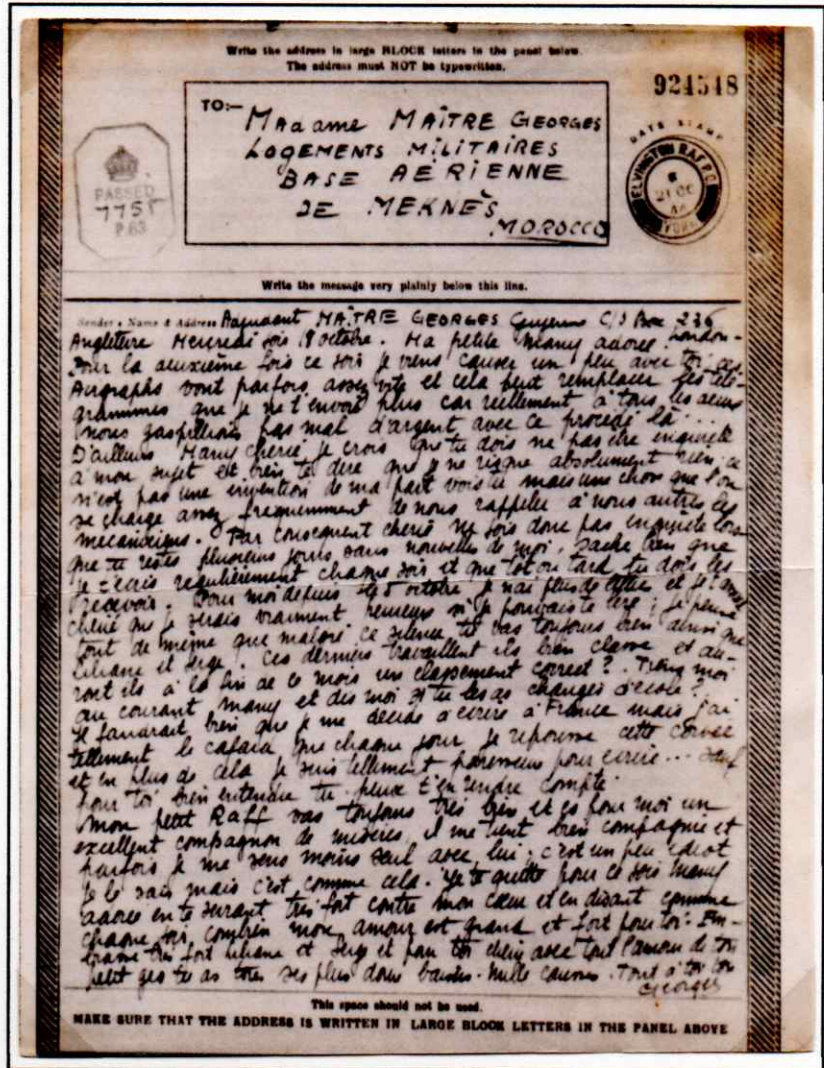 Write the address in large BLOCK letters in the panel below.
The address must NOT be typewritten.
924548
TO:—
Madame MAÎTRE GEORGES
LOGEMENTS MILITAIRES
BASE AÉRIENNE
DE MEKNÈS
MOROCCO
PASSED
7755
P.63
DATE STAMP
ELVINGTON R.A.F.P.O.
21 OC
44
YORK
Write the message very plainly below this line.
Sender's Name & Address Adjudant MAÎTRE GEORGES Guyenne C/o Box 236
London-
Angleterre Mercredi soir 18 octobre. Ma petite Many adorée
Pour la deuxième fois ce soir je viens causer un peu avec toi ces
Airgraphs vont parfois assez vite et cela peut remplacer les télé-
grammes que je ne t'envoie plus car reellement à tous les deux
nous gaspillions pas mal d'argent avec ce procédé là...
D'ailleurs Many cherie je crois que tu dois ne pas être inquiète
à mon sujet et bien te dire que je ne risque absolument rien, ce
n'est pas une invention de ma part vois tu mais une chose que l'on
se charge assez frequemment de nous rappeler à nous autres les
mecaniciens. Par consequent cherie ne sois donc pas inquiete lors
que tu restes plusieurs jours sans nouvelles de moi, sache bien que
je t'ecris regulièrement chaque soir et que tot ou tard tu dois les
recevoir. Pour moi depuis le 5 octobre je n'ai plus de lettre et je t'avoue
cherie que je serais vraiment heureux si je pouvais te lire; je pense
tout de même que malgré ce silence tu vas toujours bien ainsi que
Liliane et Serge. Ces derniers travaillent ils bien classe et au-
ront ils à la fin de ce mois un classement correct? Tiens moi
au courant many et dis moi si tu les as changés d'école?
Il faudrait bien que je me decide à ecrire à France mais j'ai
tellement le cafard que chaque jour je repousse cette corvée
et en plus de cela je suis tellement paresseux pour ecrire... sauf
pour toi bien entendu tu peux t'en rendre compte.
Mon petit Raff vas toujours très bien et es pour moi un
excellent compagnon de misères, il me tient bien compagnie et
parfois je me sens moins seul avec lui; c'est un peu idiot
je le sais mais c'est comme cela. Je te quitte pour ce soir Many
adorée en te serrant très fort contre mon cœur et en disant comme
chaque soir combien mon amour est grand et fort pour toi. Em-
brasse très fort Liliane et Serge et pour toi cherie avec tout l'amour de ton
petit geo tu as tous ses plus doux baisers. Mille caresses. Tout à toi ton
Georges
This space should not be used.
MAKE SURE THAT THE ADDRESS IS WRITTEN IN LARGE BLOCK LETTERS IN THE PANEL ABOVE